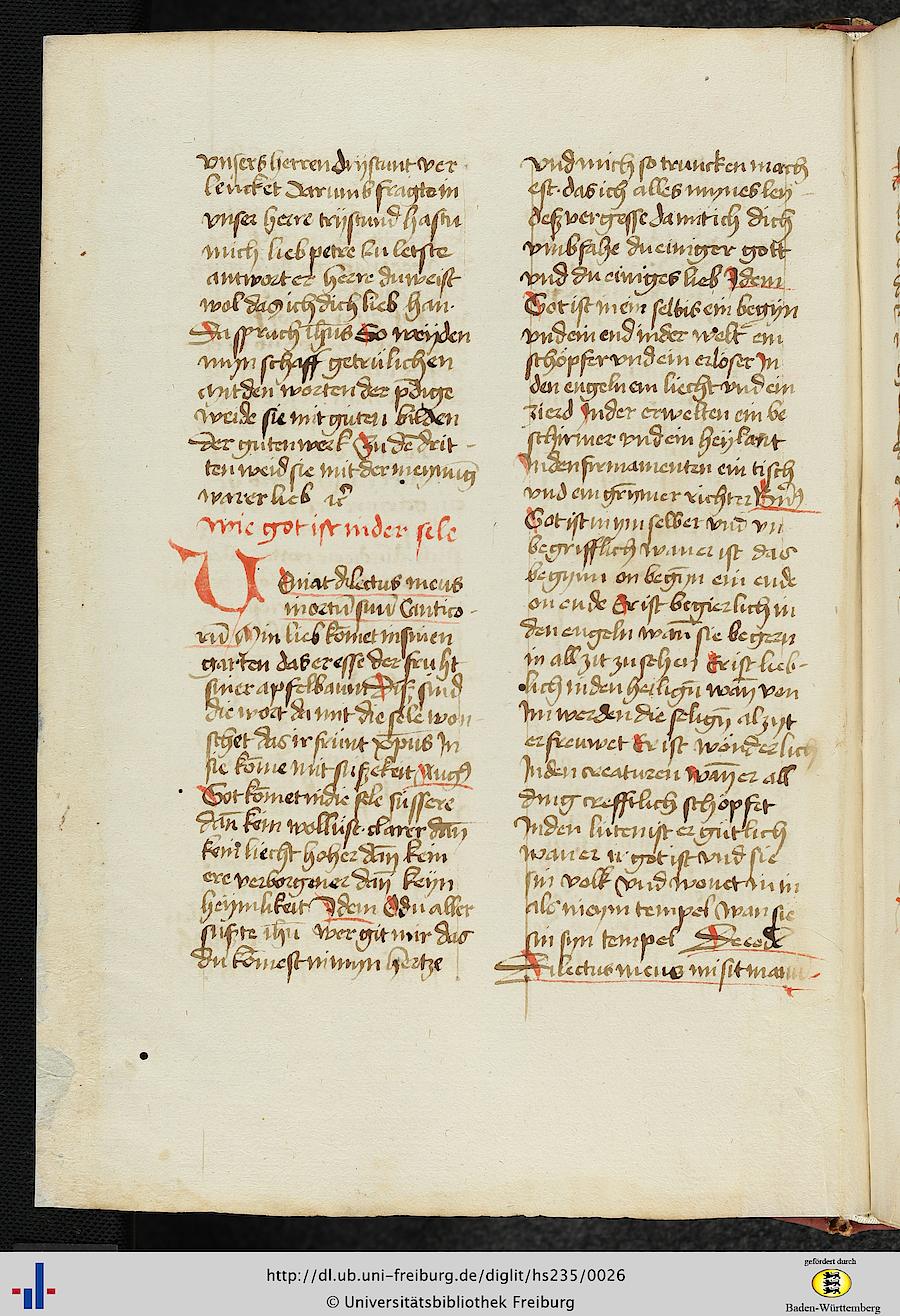 vnsers herren drystunt ver
leucket Darumb fragt in
vnser herre trystund hastu
mich lieb petre zu letste
antwort er herre du weist
wol das ich dich lieb han
Da sprach ihus So weyden
myn schaff getrúlichen
mit den worten der p̄dige
weide sie mit guten bilden
der guten werk Zu dē drit
ten weid sie mit der meynūg
warer lieb
wie got ist in der sele
Veniat dilectus meus
in ortū suū Cantico
rū Min lieb kōmet in sinen
garten das er esse der fruht
siner apfelbaum Diß sind
die wort da mit die sele won
schet das ir frúnt xp̄us In
sie kōme mit sußekeit Aug
Got kōmet in die sele sússere
dan̄ kein wollust clarer dan̄
kein liecht hoher dan̄ kein
ere verborgener dan̄ keyn
heymlikeit Idem O du aller
súste ihu wer git mir das
du kōmest in myn hertze
vnd mich so truncken mach
est das ich alles mynes ley
deß vergesse da mit ich dich
vmbfahe du einiger gott
vnd du einiges lieb Idem
Got ist mein selbis ein begyn
vnd ein end in der welt ein
schöpfer vnd ein erlöser In
den engeln ein liecht vnd ein
zierd In der erwelten ein be
schirmer vnd ein heylant
In den firmamenten ein tisch
vnd ein grymer richter
Got ist in ym selber vnd vn
begrifflich wan er ist das
begynn on begyn ein ende
on ende Er ist begierlich in
den engeln wan̄ sie begern
in all zit zu sehen Er ist lieb
lich in den heiligen wan̄ von
Im werden die selign̄ alzyt
erfreuwet Er ist wonderlich
In den creaturen wan̄ er all
ding trefflich schöpfet
In den lúten ist er gútlich
wan er ir got ist vnd sie
sin volk vnd wonet in in
als in eym tempel wan sie
sin syn tempel
Dilectus meus misit manu
http://dl.ub.uni-freiburg.de/diglit/hs235/0026
© Universitätsbibliothek Freiburg
gefördert durch
Baden-Württemberg